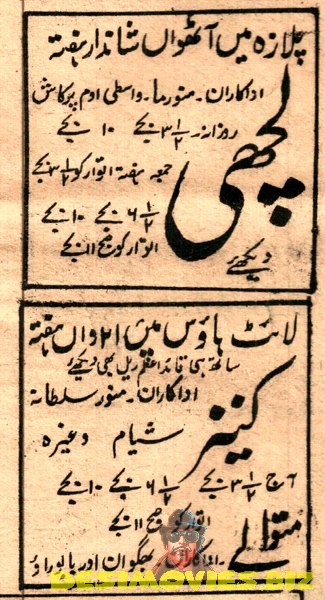 پلازہ میں آٹھواں شاندار ہفتہ
اداکاران۔ منورما۔ واسطی اوم پرکاش
لچھی
روزانہ ۳ ۱/۲ بجے ۱۰ بجے
جمعہ ہفتہ اتوار کو ۳ ۱/۲ بجے
۶ ۱/۲ بجے ۱۰ بجے
اتوار کو صبح ۱۱ بجے
دیکھئے
لائٹ ہاؤس میں ۲۱ واں ہفتہ
ساتھ ہی قائد اعظم ریل بھی دیکھئے
کنیز
اداکاران۔ منور سلطانہ
شیام وغیرہ
آج ۳ ۱/۲ بجے ۶ ۱/۲ بجے ۱۰ بجے
اتوار کو صبح ۱۱ بجے
متوالے
۔اداکاران بھگوان اور بابوراؤ
DESIMOVIES.BIZ